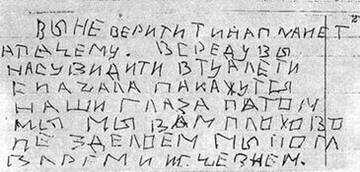 ВЫ НЕ ВЕРИТИ ТИНАПЛАНЕТ
АПАЧЕМУ. В СРЕДУ ВЫ
НАС УВИДИТИ В ТУАЛЕТИ
СНАЧАЛА ПАКАЖУТСЯ
НАШИ ГЛАЗА ПАТОМ
МЫ МЫ ВАМ ПЛОХОВО
НЕ ЗДЕЛОЕМ МЫ
И ИСЧЕВНЕМ.